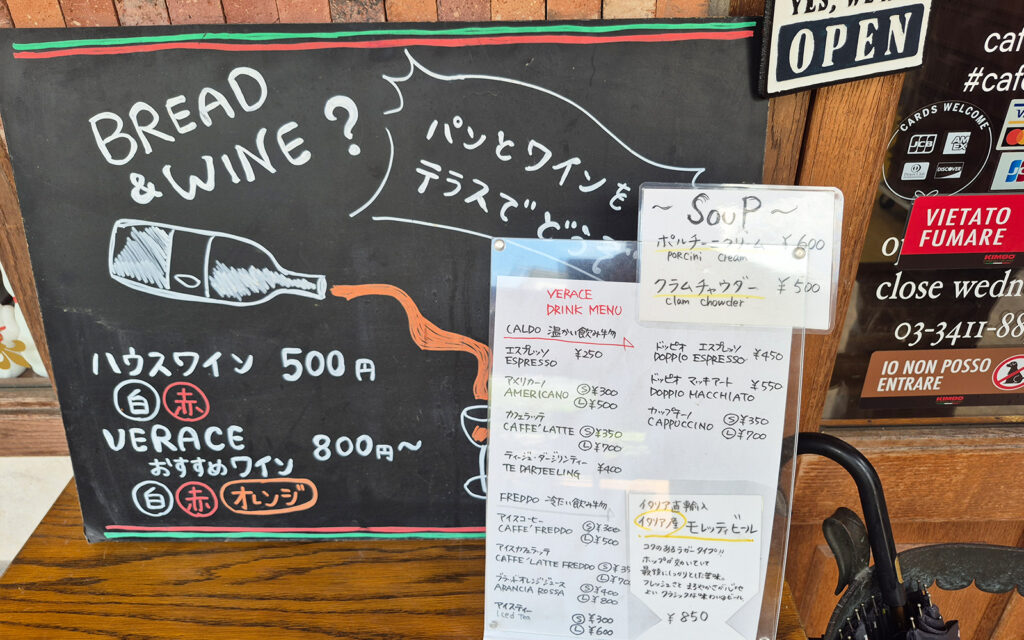 BREAD
& WINE ?
パンとワインを
テラスでどう
ハウスワイン 500円
白 赤
VERACE
おすすめワイン 800円~
白 赤 オレンジ
~ SOUP ~
ポルチーニクリーム ¥600
Porcini Cream
クラムチャウダー ¥500
Clam chowder
VERACE
DRINK MENU
CALDO 温かい飲み物
エスプレッソ
ESPRESSO ¥250
アメリカーノ
AMERICANO Ⓢ¥300
Ⓛ¥500
カフェラッテ
CAFFE' LATTE Ⓢ¥350
Ⓛ¥700
ティージュ・ダージリンティー
TE DARJEELING ¥400
ドッピオ エスプレッソ
DOPPIO ESPRESSO ¥450
ドッピオ マッキアート
DOPPIO MACCHIATO ¥550
カップチーノ
CAPPUCCINO Ⓢ¥350
Ⓛ¥700
FREDDO 冷たい飲み物
アイスコーヒー
CAFFE' FREDDO Ⓢ¥300
Ⓛ¥500
アイスカフェラッテ
CAFFE' LATTE FREDDO Ⓢ¥35
Ⓛ¥70
ブラッドオレンジジュース
ARANCIA ROSSA Ⓢ¥400
Ⓛ¥800
アイスティー
Iced Tea Ⓢ¥300
Ⓛ¥600
イタリア直輸入
イタリア産 モレッティビール
コクのあるラガータイプ!!
ホップが効いていて
最後にしっかりとした苦味。
フレッシュさと まろやかさが心地
よい クラシックな味わいのビール
¥850
YES, WE'RE
OPEN
caf
#caf
CARDS WELCOME
JCB AMEX
Diners Club DISCOVER
VISA
JCB
VIETATO
FUMARE
KIMBO
op
close wedn
03-3411-88
IO NON POSSO
ENTRARE
KIMBO